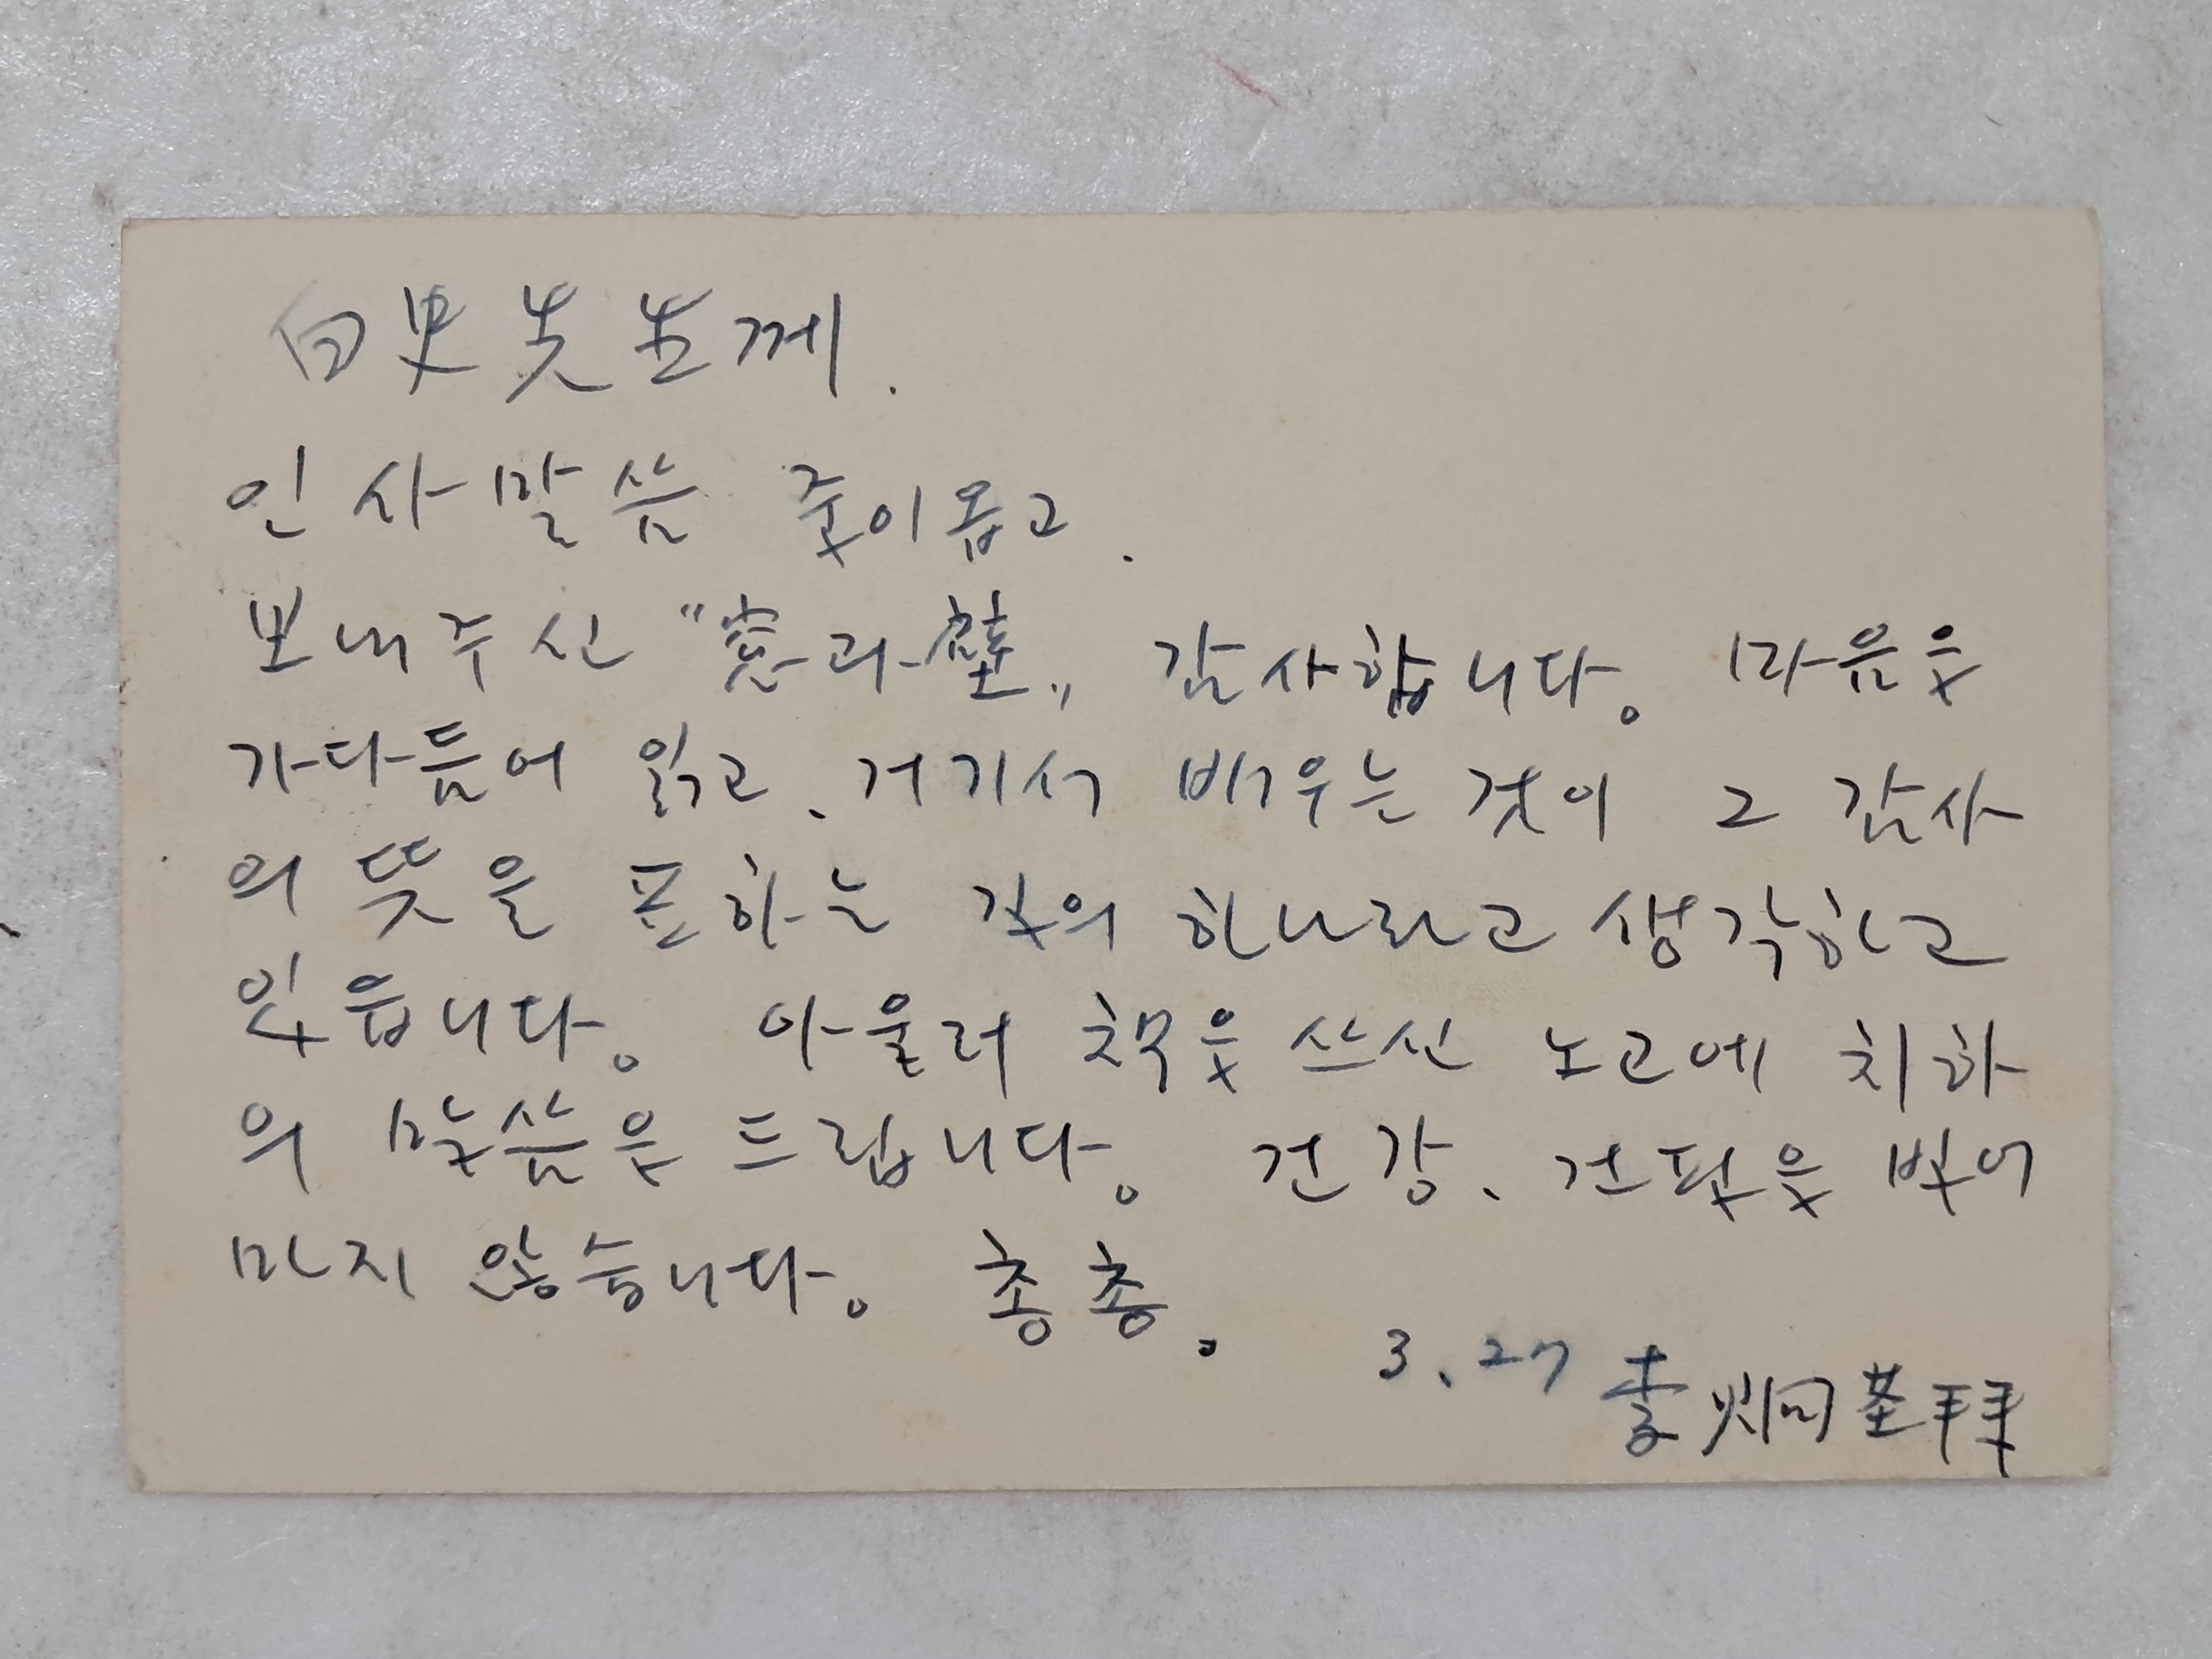 白史先生께.
인사말씀 줄이옵고.
보내주신 "窓과 壁" 감사합니다. 마음을
가다듬어 읽고, 거기서 배우는 것이 그 감사
의 뜻을 표하는 것의 하나라고 생각하고
있읍니다. 아울러 책을 쓰신 노고에 치하
의 말씀을 드립니다. 건강, 건필을 빌어
마지 않습니다. 총총.
3.27 李炯基拜